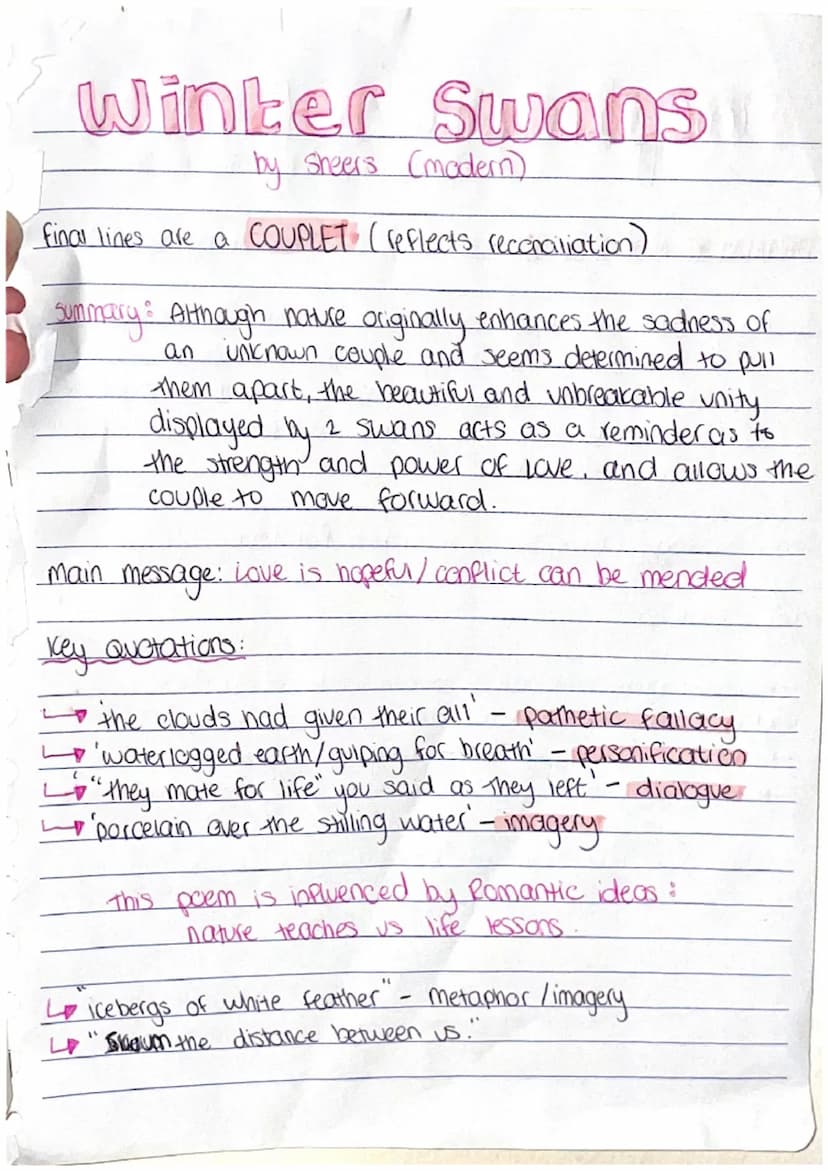 Winter Swans
by Sheers (modern)
final lines are a COUPLET (reflects reconciliation)
summary: Although nature originally enhances the sadness of
an unknown couple and seems determined to pull
them apart, the beautiful and unbreakable unity
displayed by 2 swans acts as a reminder as to
the strength and power of love, and allows the
couple to move forward.
Main message: Love is hopeful/conflict can be mended
Key Quotations:
↳ 'the clouds had given their all' - pathetic fallacy
↳ 'waterlogged earth/gulping for breath' - personification
↳ '"they mate for life" you said as they left' - dialogue
↳ 'porcelain over the stilling water' - imagery
This poem is influenced by Romantic ideas:
nature teaches us life lessons.
↳ "icebergs of white feather" - metaphor/imagery
↳ "swum the distance between us."